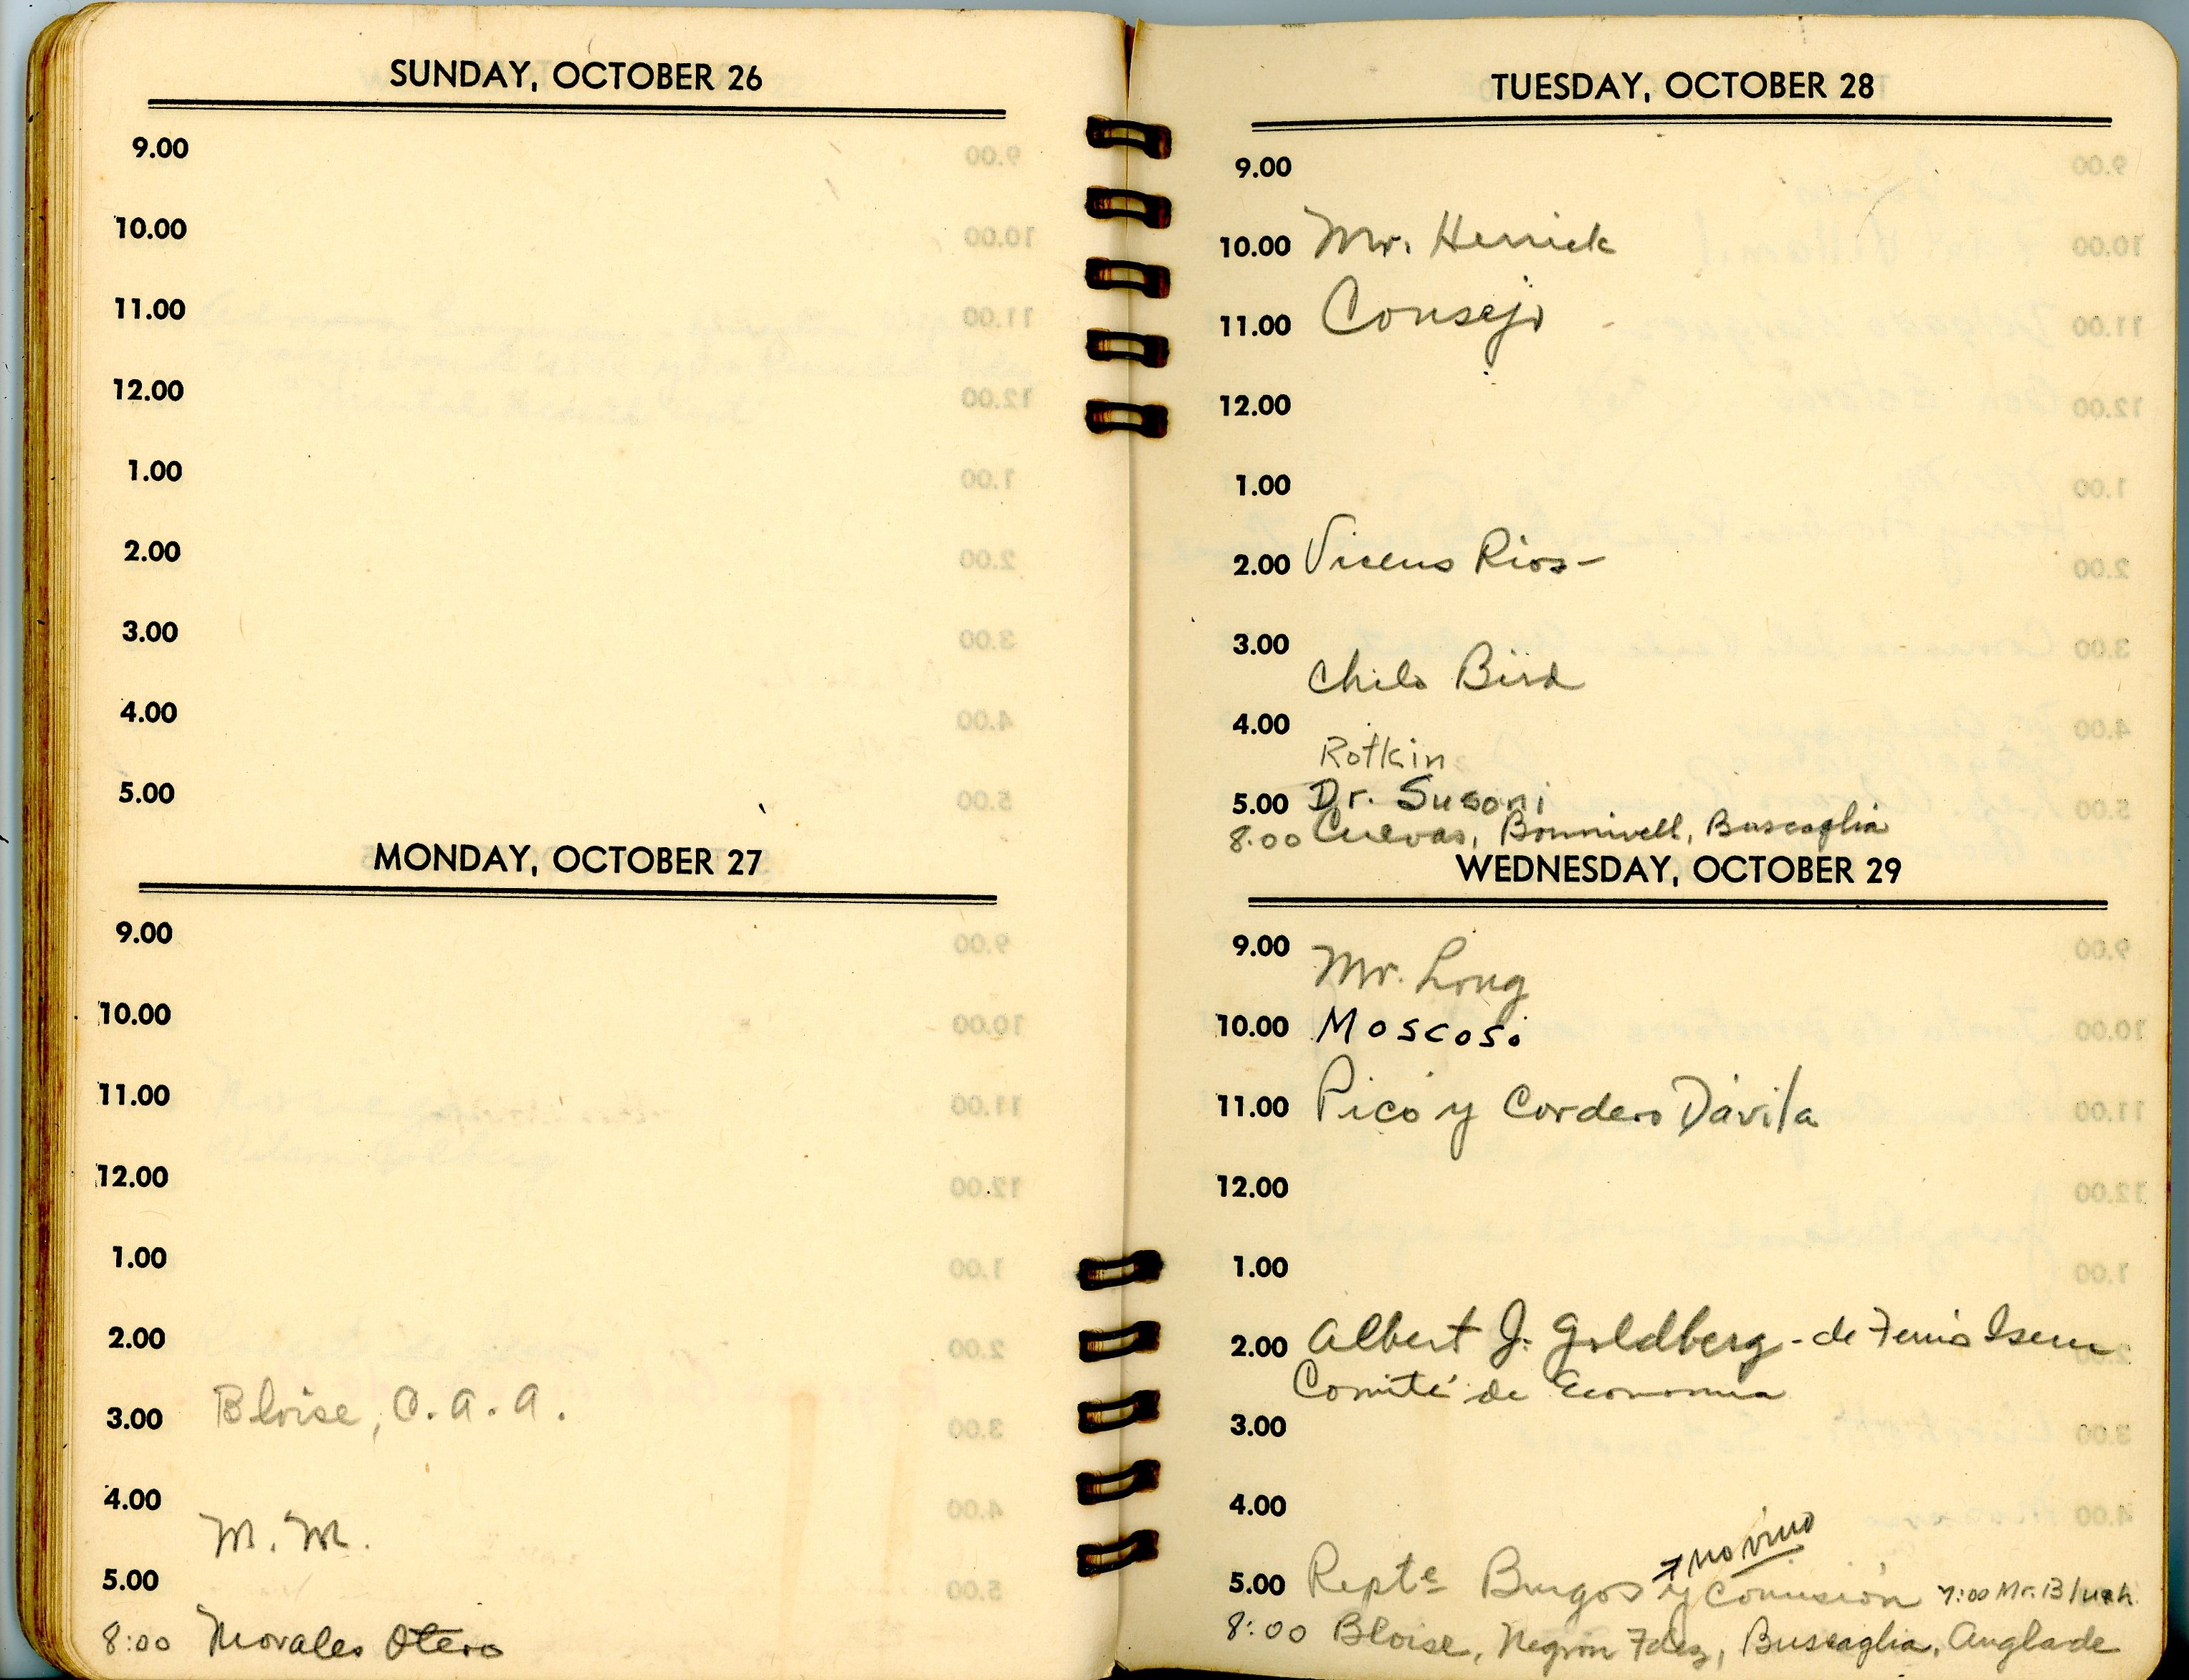 SUNDAY, OCTOBER 26
9.00
10.00
11.00
12.00
1.00
2.00
3.00
4.00
5.00
MONDAY, OCTOBER 27
9.00
10.00
11.00
12.00
1.00
2.00
3.00 Bloise, C.A.A.
4.00
M. M.
5.00
8:00 Morales Otero
TUESDAY, OCTOBER 28
9.00
10.00 Mr. Herrick
11.00 Consejo
12.00
1.00
2.00 Vicens Rios-
3.00
Chilo Bird
4.00
Rotkin
5.00 Dr. Susoni
8:00 Cuevas, Bonnivell, Buscaglia
WEDNESDAY, OCTOBER 29
9.00 Mr. Long
10.00 Moscoso
11.00 Picó y Cordero Dávila
12.00
1.00
2.00 Albert J. Goldberg - de Fernós Isern
Comité de Economia
3.00
4.00
no vino
5.00 Repte Burgos y comisión 7:00 Mr.
8:00 Bloise, Negrón Fdez, Buscaglia, Anglade